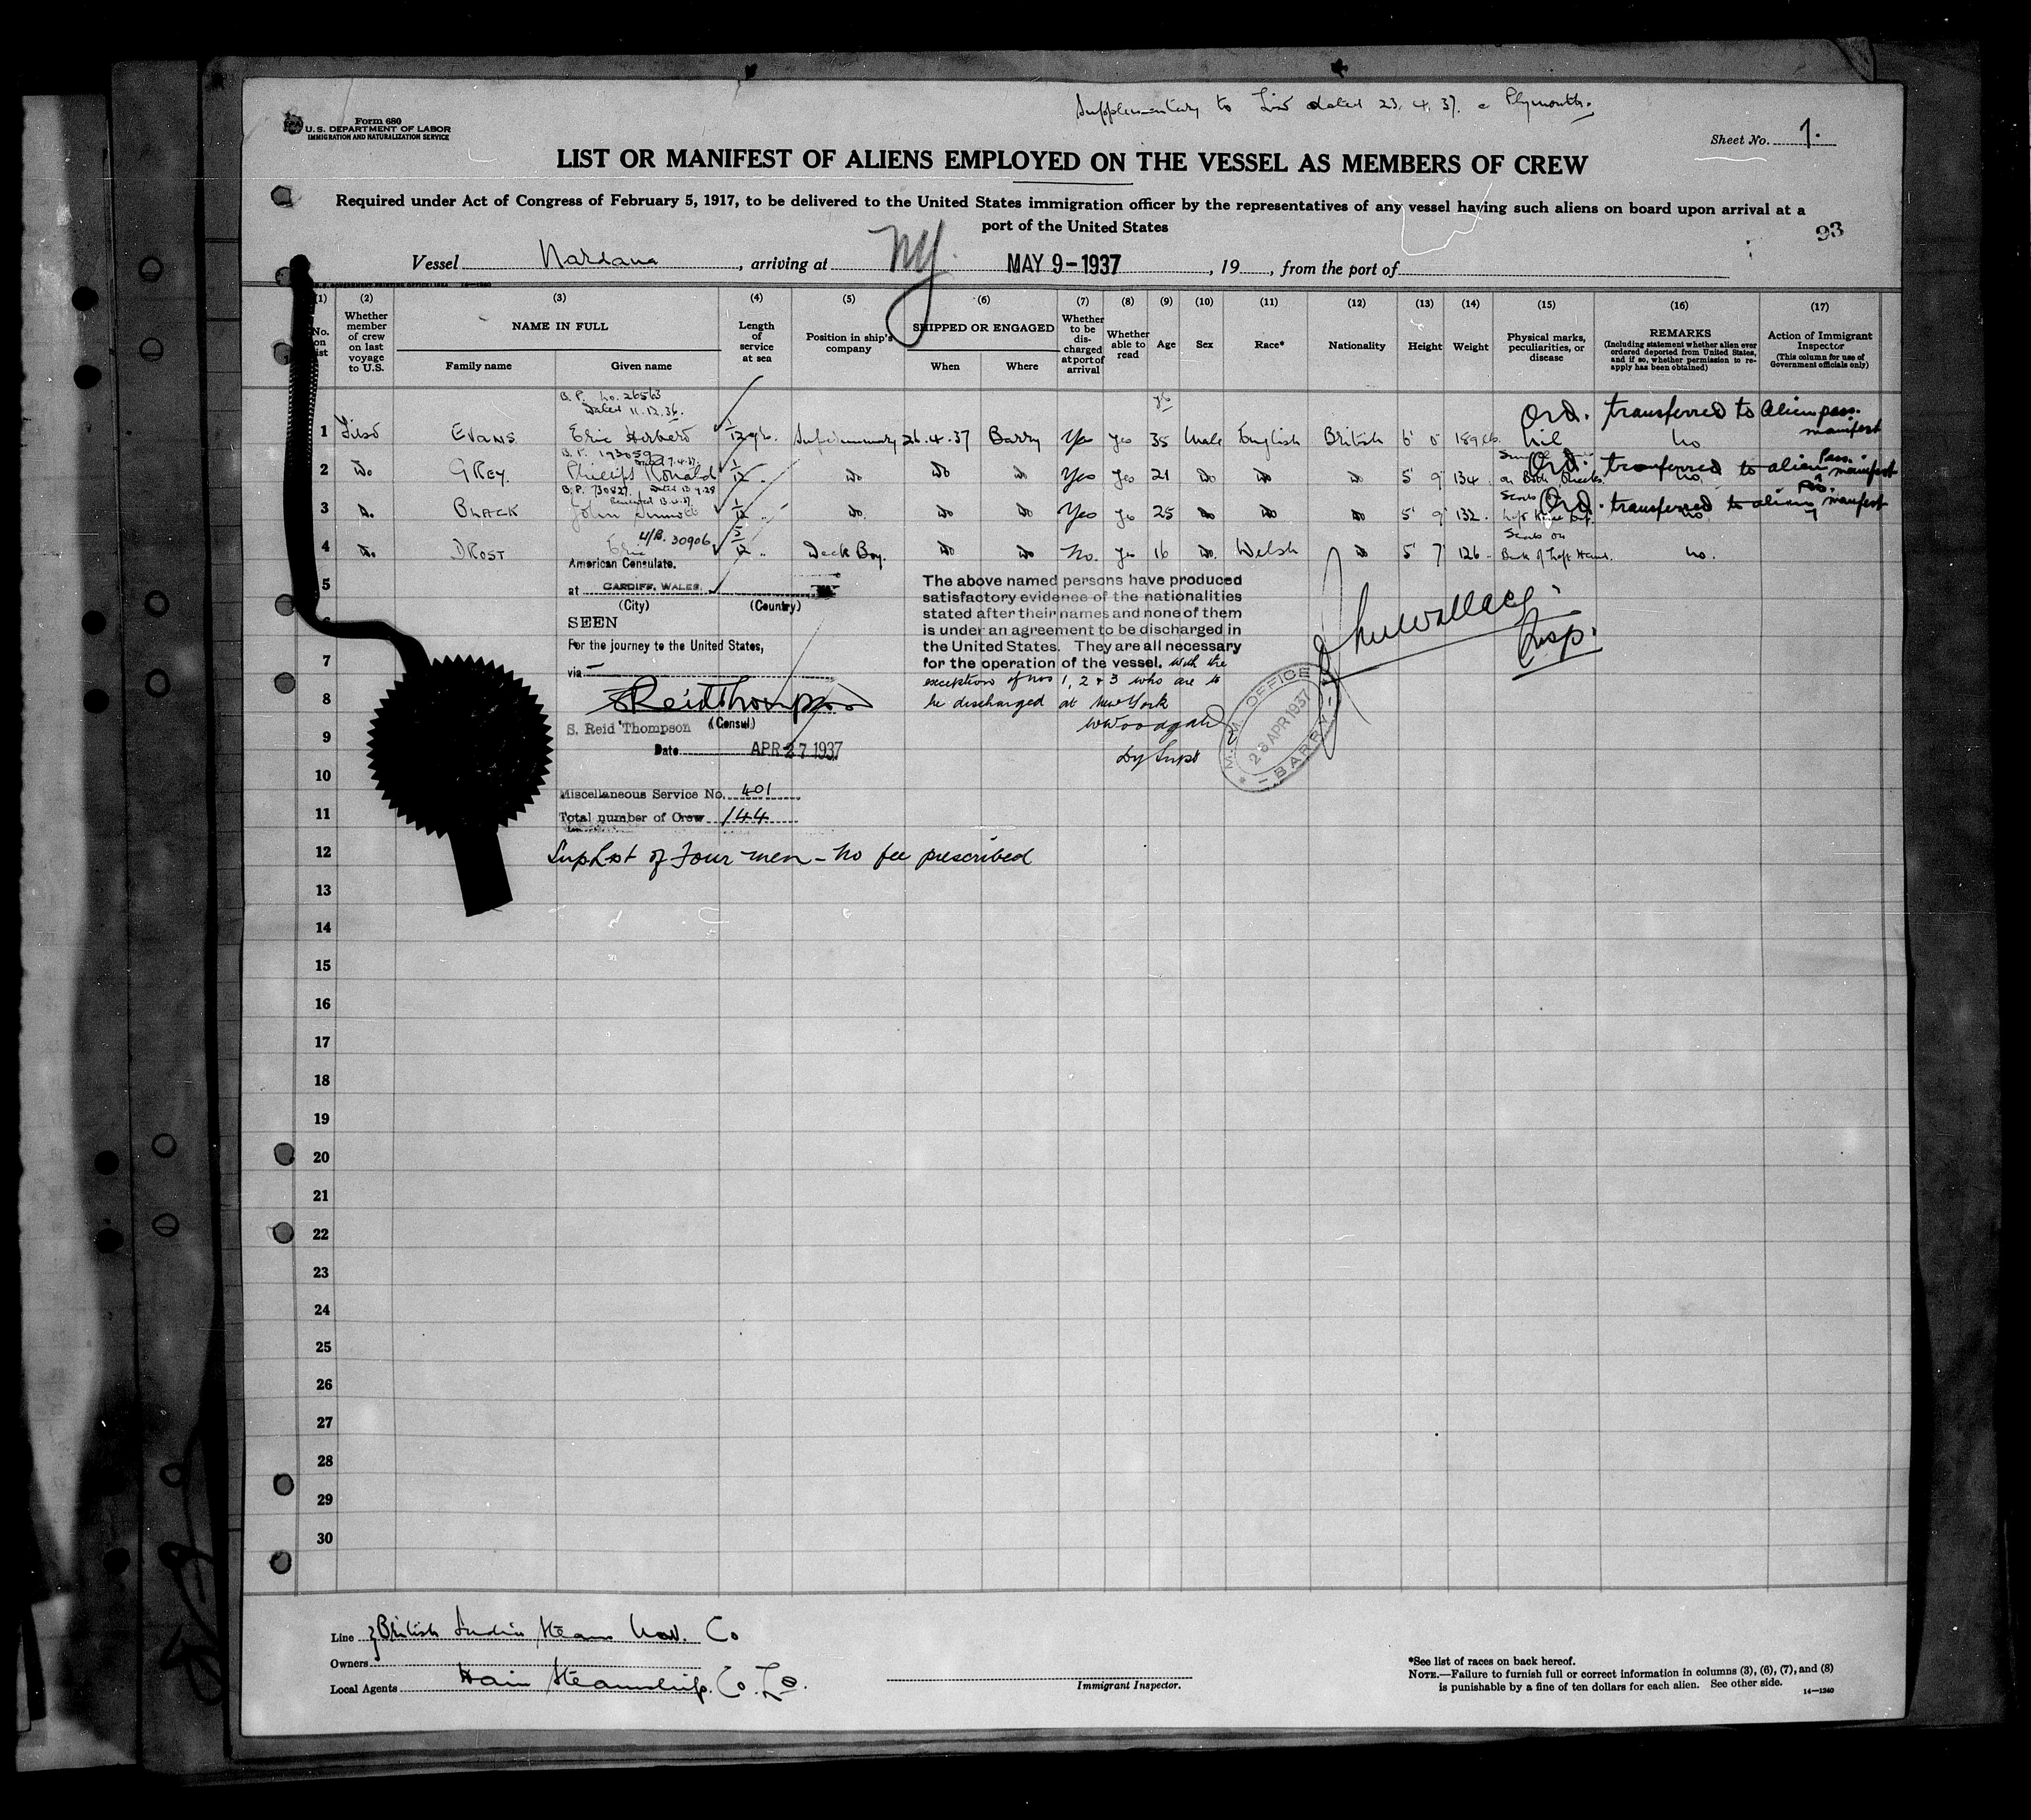 Supplementary to List dated 23. 4. 37. @ Plymouth.
Form 680
U.S. DEPARTMENT OF LABOR
IMMIGRATION AND NATURALIZATION SERVICE
Sheet No. 1.
LIST OR MANIFEST OF ALIENS EMPLOYED ON THE VESSEL AS MEMBERS OF CREW
Required under Act of Congress of February 5, 1917, to be delivered to the United States immigration officer by the representatives of any vessel having such aliens on board upon arrival at a
port of the United States
93
Vessel Nardana, arriving at NY. MAY 9-1937, 19, from the port of
(1) (2) (3) (4) (5) (6) (7) (8) (9) (10) (11) (12) (13) (14) (15) (16) (17)
No. on list
Whether member of crew on last voyage to U.S.
NAME IN FULL
Family name
Given name
Length of service at sea
Position in ship's company
SHIPPED OR ENGAGED
When
Where
Whether to be discharged at port of arrival
Whether able to read
Age
Sex
Race*
Nationality
Height
Weight
Physical marks, peculiarities, or disease
REMARKS
(Including statement whether alien ever ordered deported from United States, and if so, whether permission to reapply has been obtained)
Action of Immigrant Inspector
(This column for use of Government officials only)
B.P. No. 26563
Dated 11.12.36.
1 EVANS Eric Herbert 1/12 Supernumerary 26.4.37 Barry Yes Yes 35 Male English British 6' 0" 189 lb. Nil No
Ord. transferred to Alien pass. manifest
B.P. 193059
2 Do GREY Phillip Ronald 1/12 Do Do Do Yes Yes 21 Do Do Do 5' 9" 134 on Both No
Ord. transferred to alien Pass. manifest
B.P. 730827 Dated 13.9.28
Renewed 13.4.37
3 Do. BLACK John 1/12 Do. Do Do Yes Yes 25 Do Do Do 5' 9" 132. Scars No
Ord. transferred to alien pass. manifest
U/B. 30906
4 Do. DROST Eric 3/12 Deck Boy. Do Do No. Yes 16 Do. Welsh Do 5' 7" 126 Scars on Back of Left Hand. No.
American Consulate.
at CARDIFF, WALES.
(City) (Country)
SEEN
For the journey to the United States,
via
S Reid Thompson
S. Reid Thompson (Consul)
Date APR 27 1937
Miscellaneous Service No. 401
Total number of Crew 144
Sup List of Four men - No fee prescribed
The above named persons have produced
satisfactory evidence of the nationalities
stated after their names and none of them
is under an agreement to be discharged in
the United States. They are all necessary
for the operation of the vessel. with the
exception of nos 1, 2 & 3 who are to
be discharged at New York
W Woodgate
Dy Supt
M.M. OFFICE
28 APR 1937
BARRY
Wallace
Insp.
5
6
7
8
9
10
11
12
13
14
15
16
17
18
19
20
21
22
23
24
25
26
27
28
29
30
Line British India Steam Nav. Co
Owners
Local Agents Hain Steamship. Co. Ld.
Immigrant Inspector.
*See list of races on back hereof.
NOTE.—Failure to furnish full or correct information in columns (3), (6), (7), and (8)
is punishable by a fine of ten dollars for each alien. See other side.
14—1240